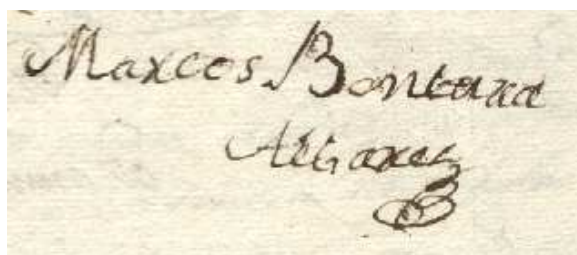 Marcos Bentura
Albarez